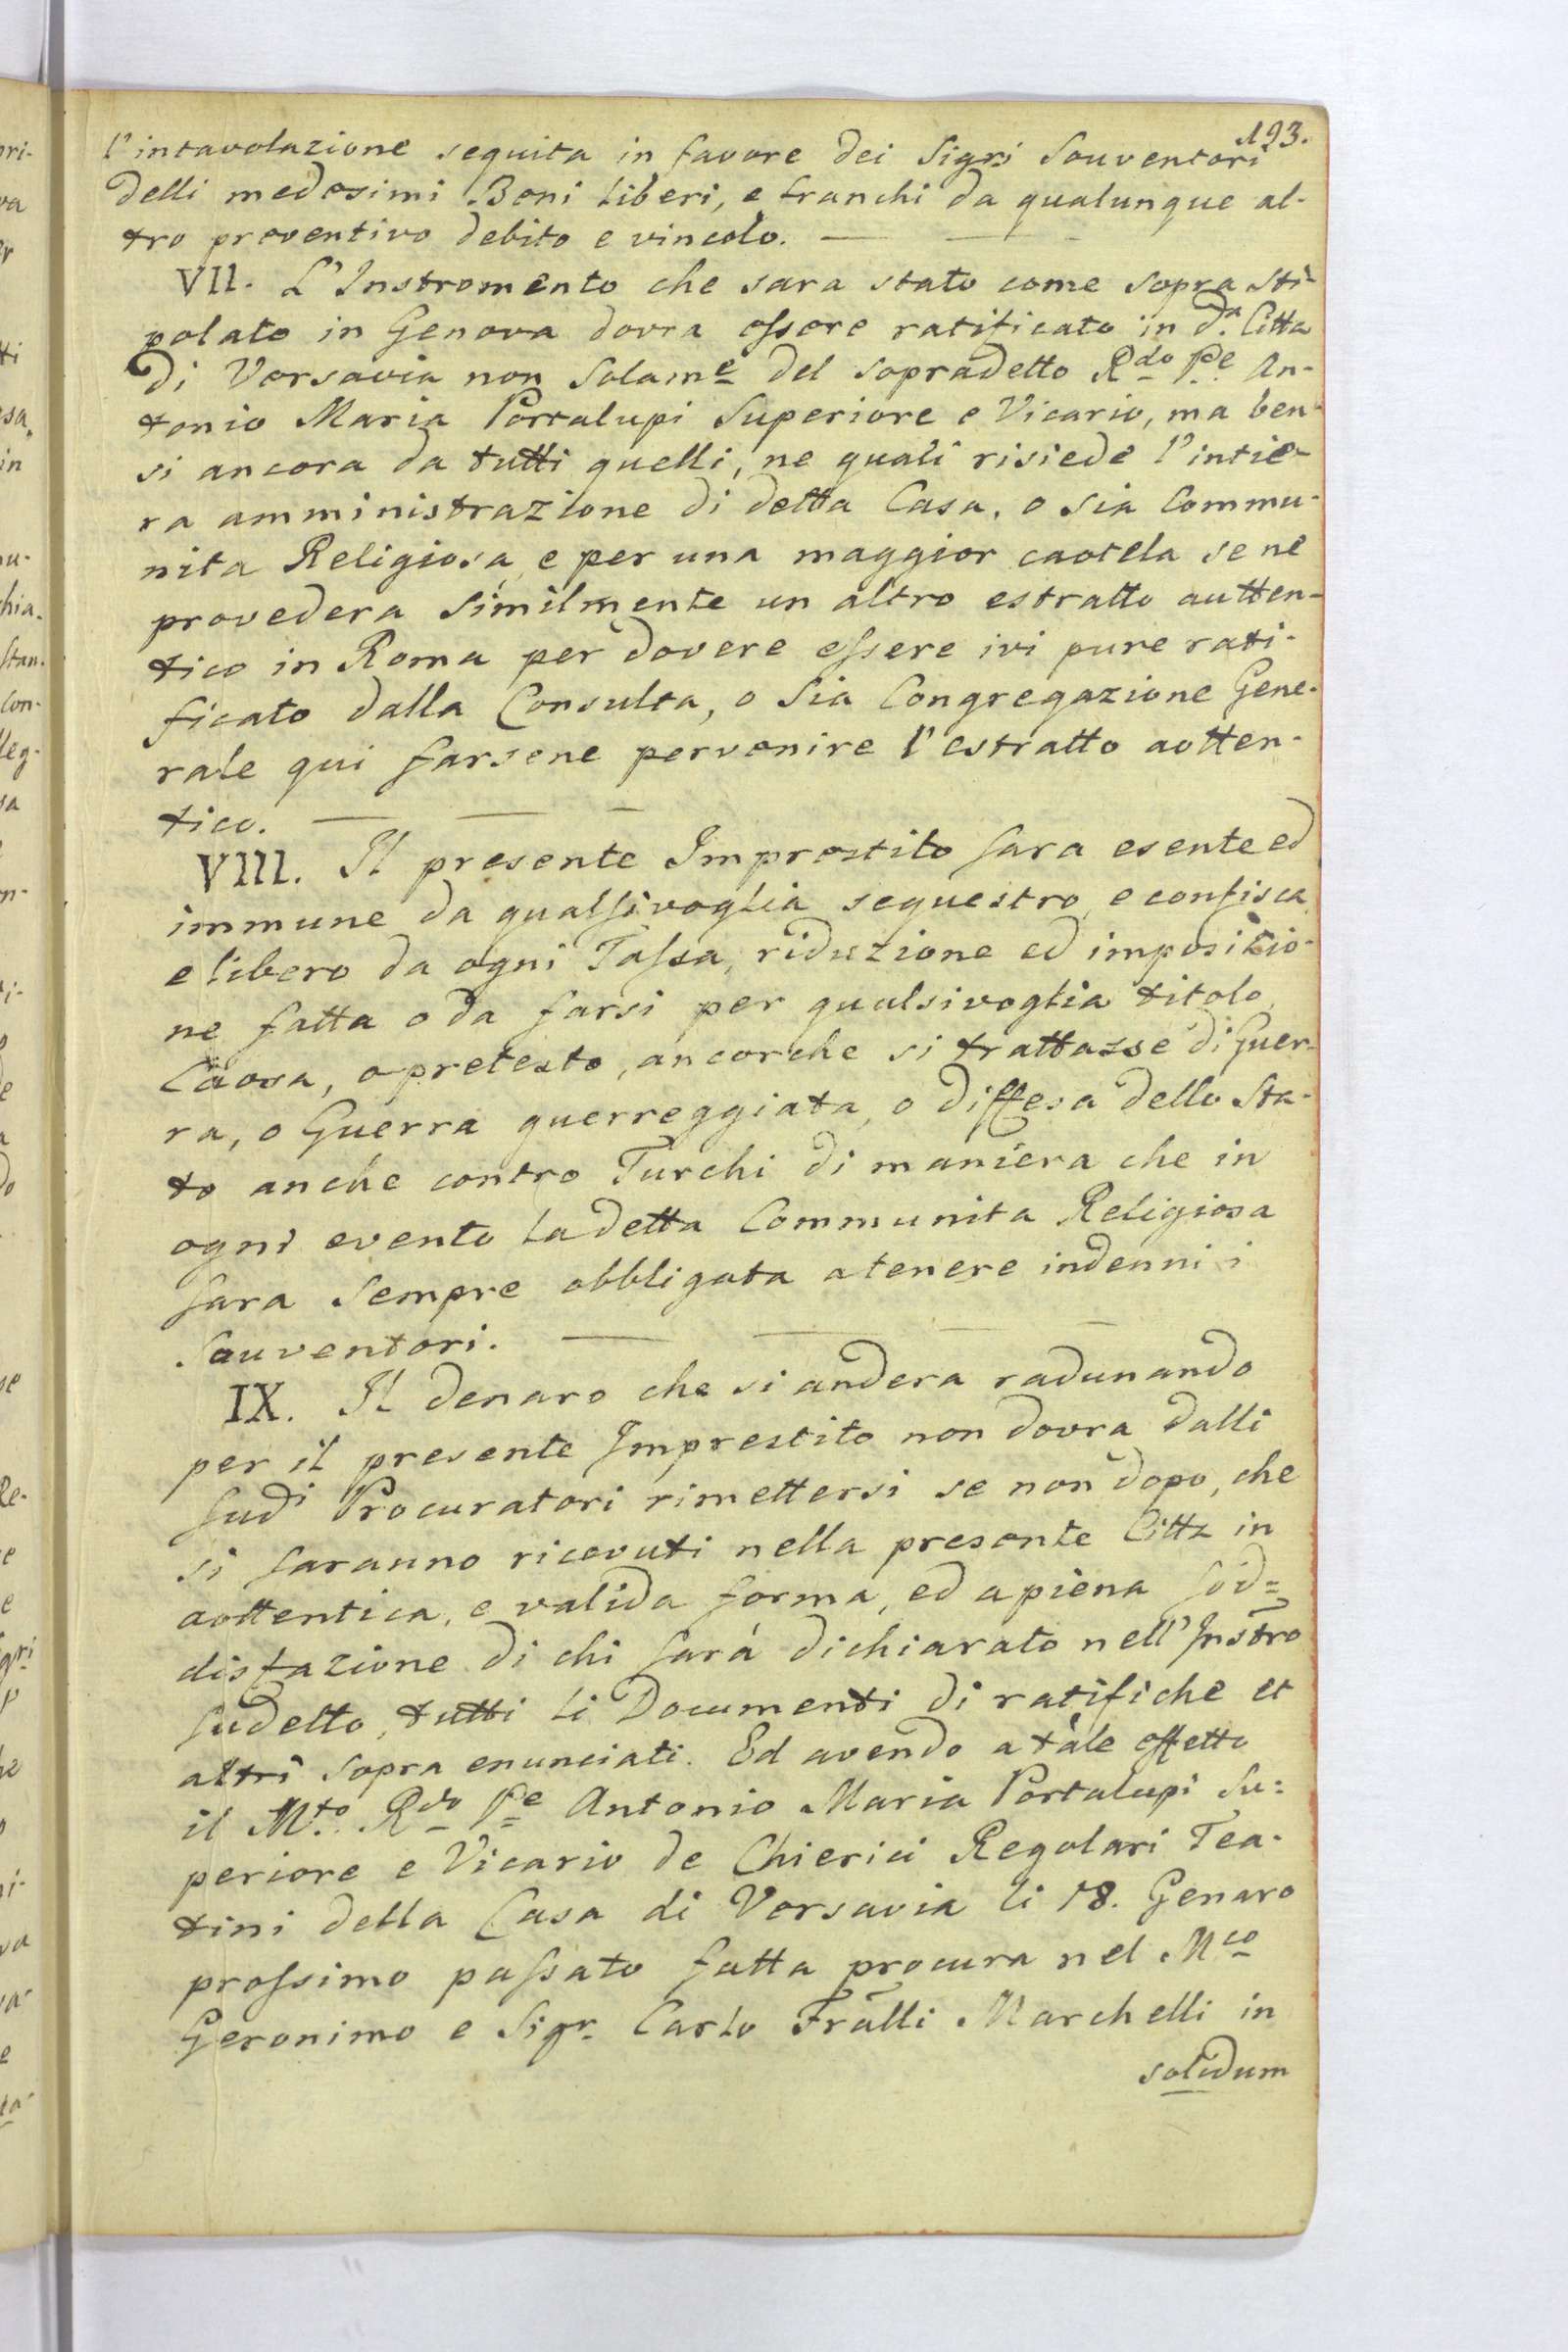 193.
l'intavolazione seguita in favore dei Sigri Souventori
delli medesimi Beni liberi, e franchi da qualunque al-
tro preventivo debito e vincolo. —
VII. L'Instromento che sara stato come sopra sti-
polato in Genova dovra essere ratificato in da. Citta
di Varsavia non Solame del sopradetto Rdo Pe An-
tonio Maria Portalupi Superiore e Vicario, ma ben-
si ancora da tutti quelli, ne quali risiede l'intie-
ra amministrazione di detta Casa, o sia Commu-
nita Religiosa, e per una maggior caotela se ne
provedera Similmente un altro estratto autten-
tico in Roma per dovere essere ivi pure rati-
ficato dalla Consulta, o Sia Congregazione Gene-
rale qui farsene pervenire l'estratto aotten-
tico. — — —
VIII. Il presente Imprestito sara esente ed
immune da qualsivoglia sequestro, e confisca
e libero da ogni Tassa, riduzione ed imposizio-
ne fatta o da farsi per qualsivoglia titolo,
Caosa, o pretesto, ancorche si trattasse di Guer-
ra, o Guerra guerreggiata, o diffesa dello Sta-
to anche contro Turchi di maniera che in
ogni evento la detta Communita Religiosa
sara Sempre obbligata a tenere indenni i
Souventori. — — — —
IX. Il denaro che si andera radunando
per il presente Imprestito non dovra dalli
sudi Procuratori rimettersi se non dopo, che
si saranno ricevuti nella presente Citta in
aottentica, e valida forma, ed a piena sod=
disfazione di chi sarà dichiarato nell'Instro
sudetto, tutti li Documenti di ratifiche et
altri sopra enunciati. Ed avendo a tale effetto
il Mto. Rdo Pe Antonio Maria Portalupi Su=
periore e Vicario de Chierici Regolari Tea-
tini della Casa di Varsavia li 18. Genaro
prossimo passato fatta procura nel Mco
Geronimo e Sigr. Carlo Fralli Marchelli in
solidum